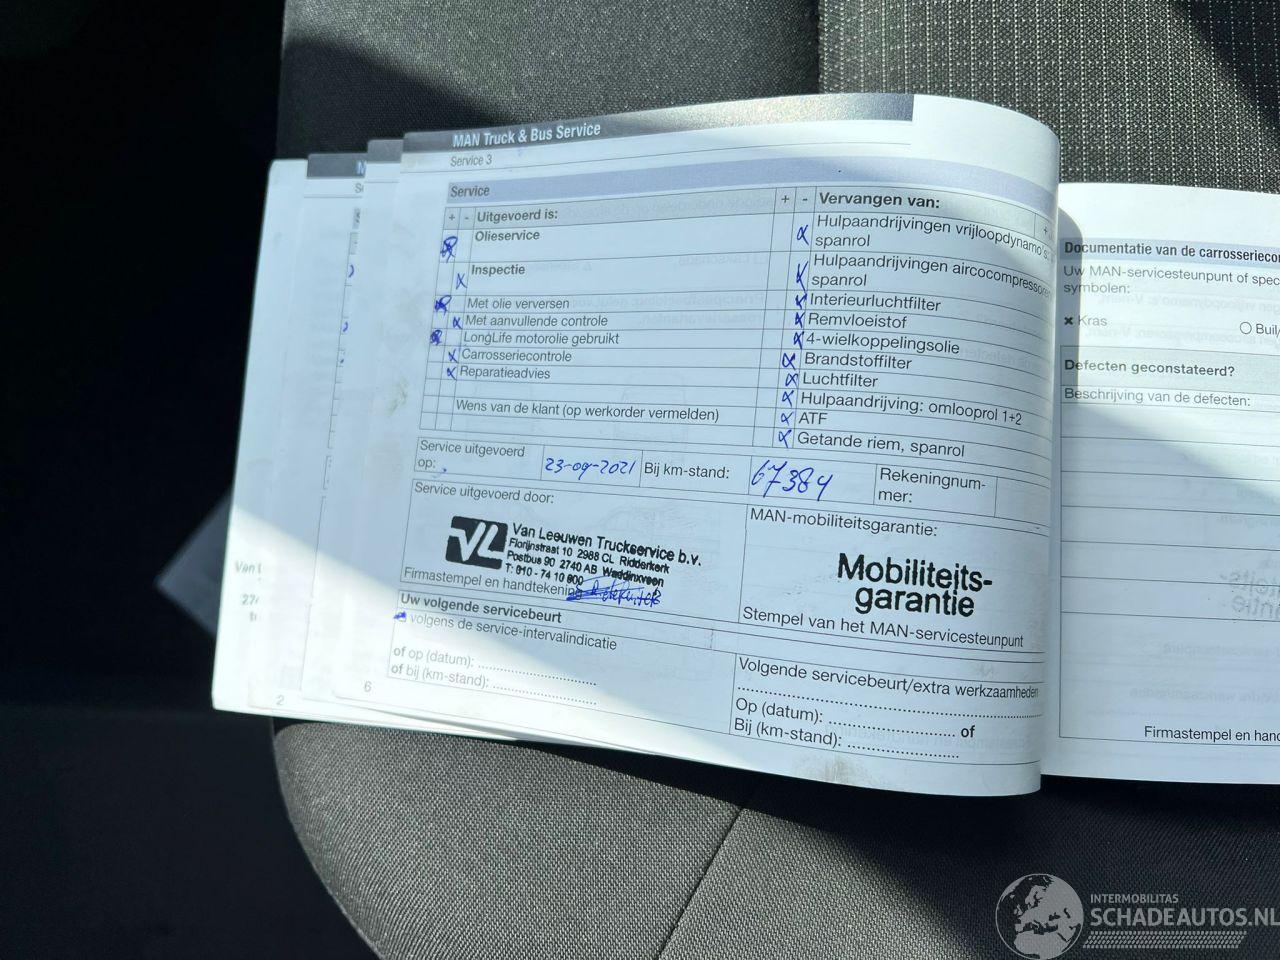 MAN Truck & Bus Service
Service 3
Service
+ - Uitgevoerd is:
Olieservice
Inspectie
Met olie verversen
Met aanvullende controle
LongLife motorolie gebruikt
Carrosseriecontrole
Reparatieadvies
Wens van de klant (op werkorder vermelden)
+ - Vervangen van:
Hulpaandrijvingen vrijloopdynamo's:
spanrol
Hulpaandrijvingen aircocompressoren
spanrol
Interieurluchtfilter
Remvloeistof
4-wielkoppelingsolie
Brandstoffilter
Luchtfilter
Hulpaandrijving: omlooprol 1+2
ATF
Getande riem, spanrol
Service uitgevoerd
op:
23-09-2021
Bij km-stand:
67384
Rekeningnum-
mer:
Service uitgevoerd door:
VL
Van Leeuwen Truckservice b.v.
Florijnstraat 10 2988 CL Ridderkerk
Postbus 90 2740 AB Waddinxveen
T: 010 - 74 10 600
Firmastempel en handtekening
MAN-mobiliteitsgarantie:
Mobiliteits-
garantie
Stempel van het MAN-servicesteunpunt
Uw volgende servicebeurt
volgens de service-intervalindicatie
of op (datum): ..............................
of bij (km-stand): ..........................
Volgende servicebeurt/extra werkzaamheden
Op (datum): .............................. of
Bij (km-stand): ..........................
6
2
Documentatie van de carrosseriecon
Uw MAN-servicesteunpunt of spec
symbolen:
Kras
Buil/
Defecten geconstateerd?
Beschrijving van de defecten:
Firmastempel en hand
INTERMOBILITAS
SCHADEAUTOS.NL